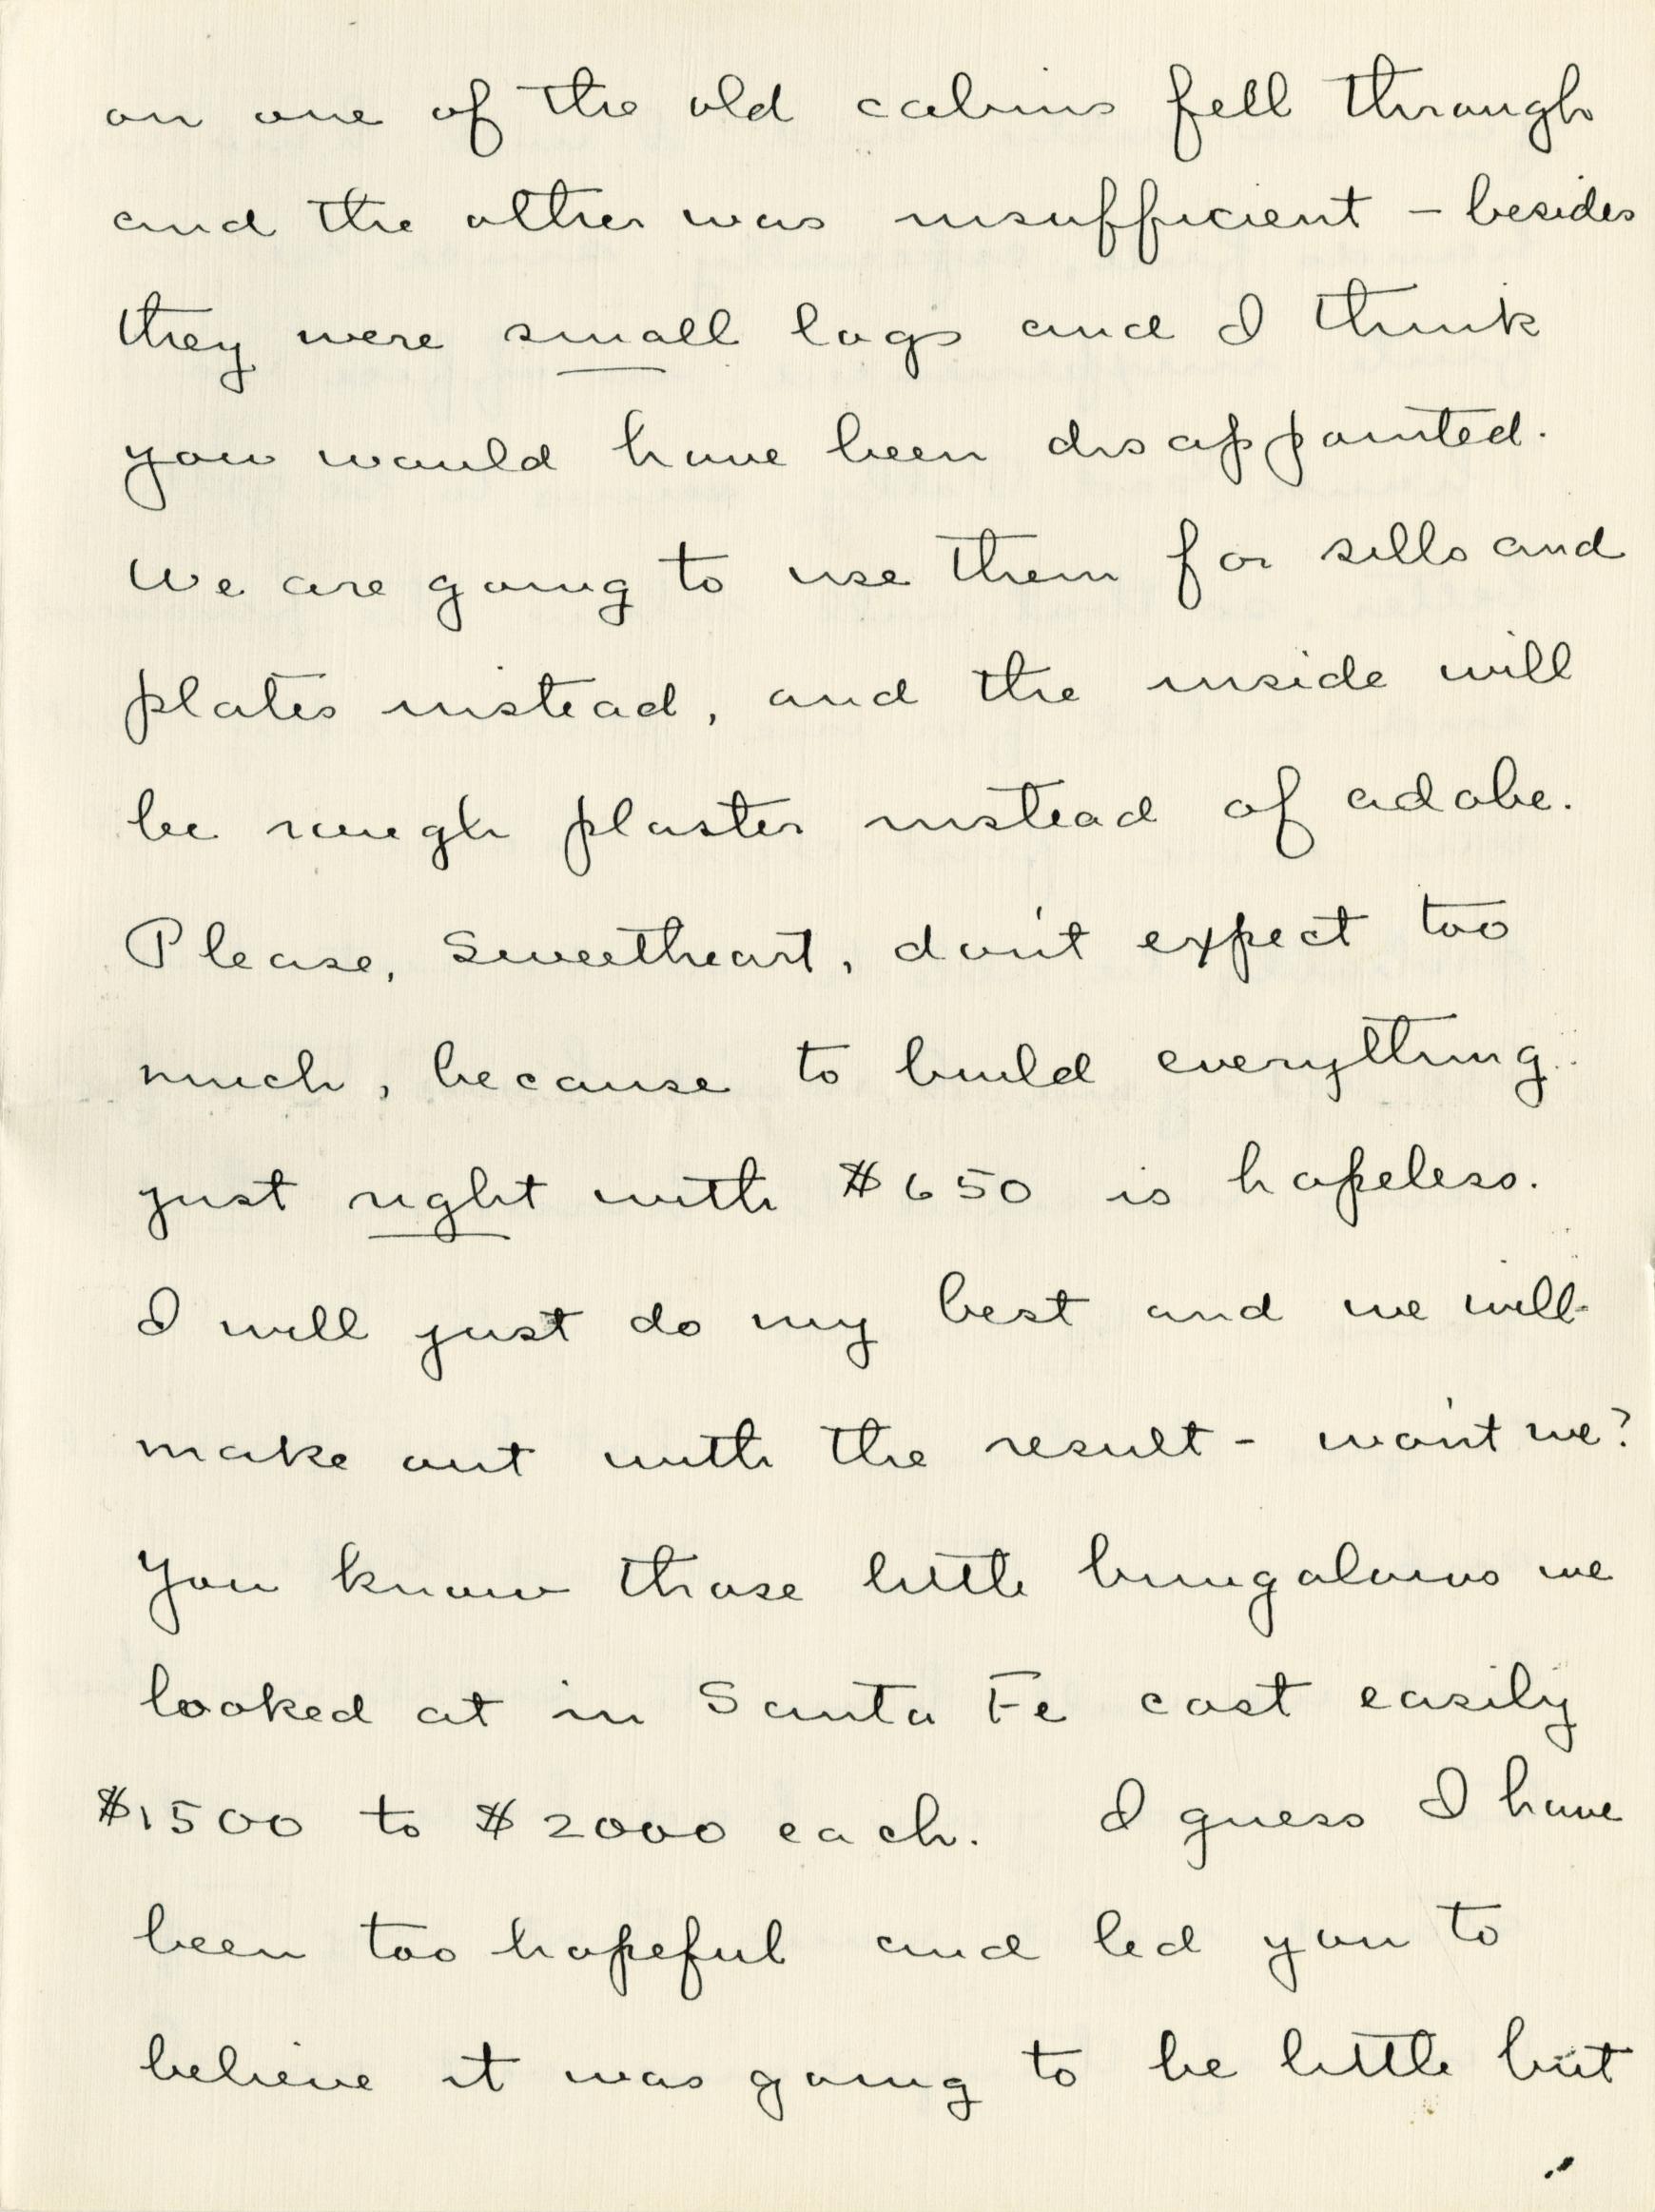 on one of the old cabins fell through
and the other was insufficient – besides
they were small logs and I think
you would have been disappointed.
We are going to use them for sills and
plates instead, and the inside will
be rough plaster instead of adobe.
Please, Sweetheart, don't expect too
much, because to build everything
just right with $650 is hopeless.
I will just do my best and we will
make out with the result – won't we?
You know those little bungalows we
looked at in Santa Fe cost easily
$1500 to $2000 each. I guess I have
been too hopeful and led you to
believe it was going to be little but